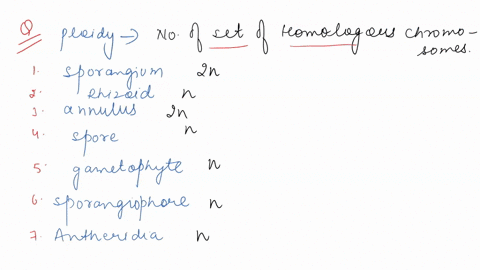 Q ploidy → No. of set of Homologous chromo-
somes.
1. sporangium 2n
2. Rhizoid n
3. annulus 2n
4. spore n
5. gametophyte n
6. sporangiophore n
7. Antheridia n